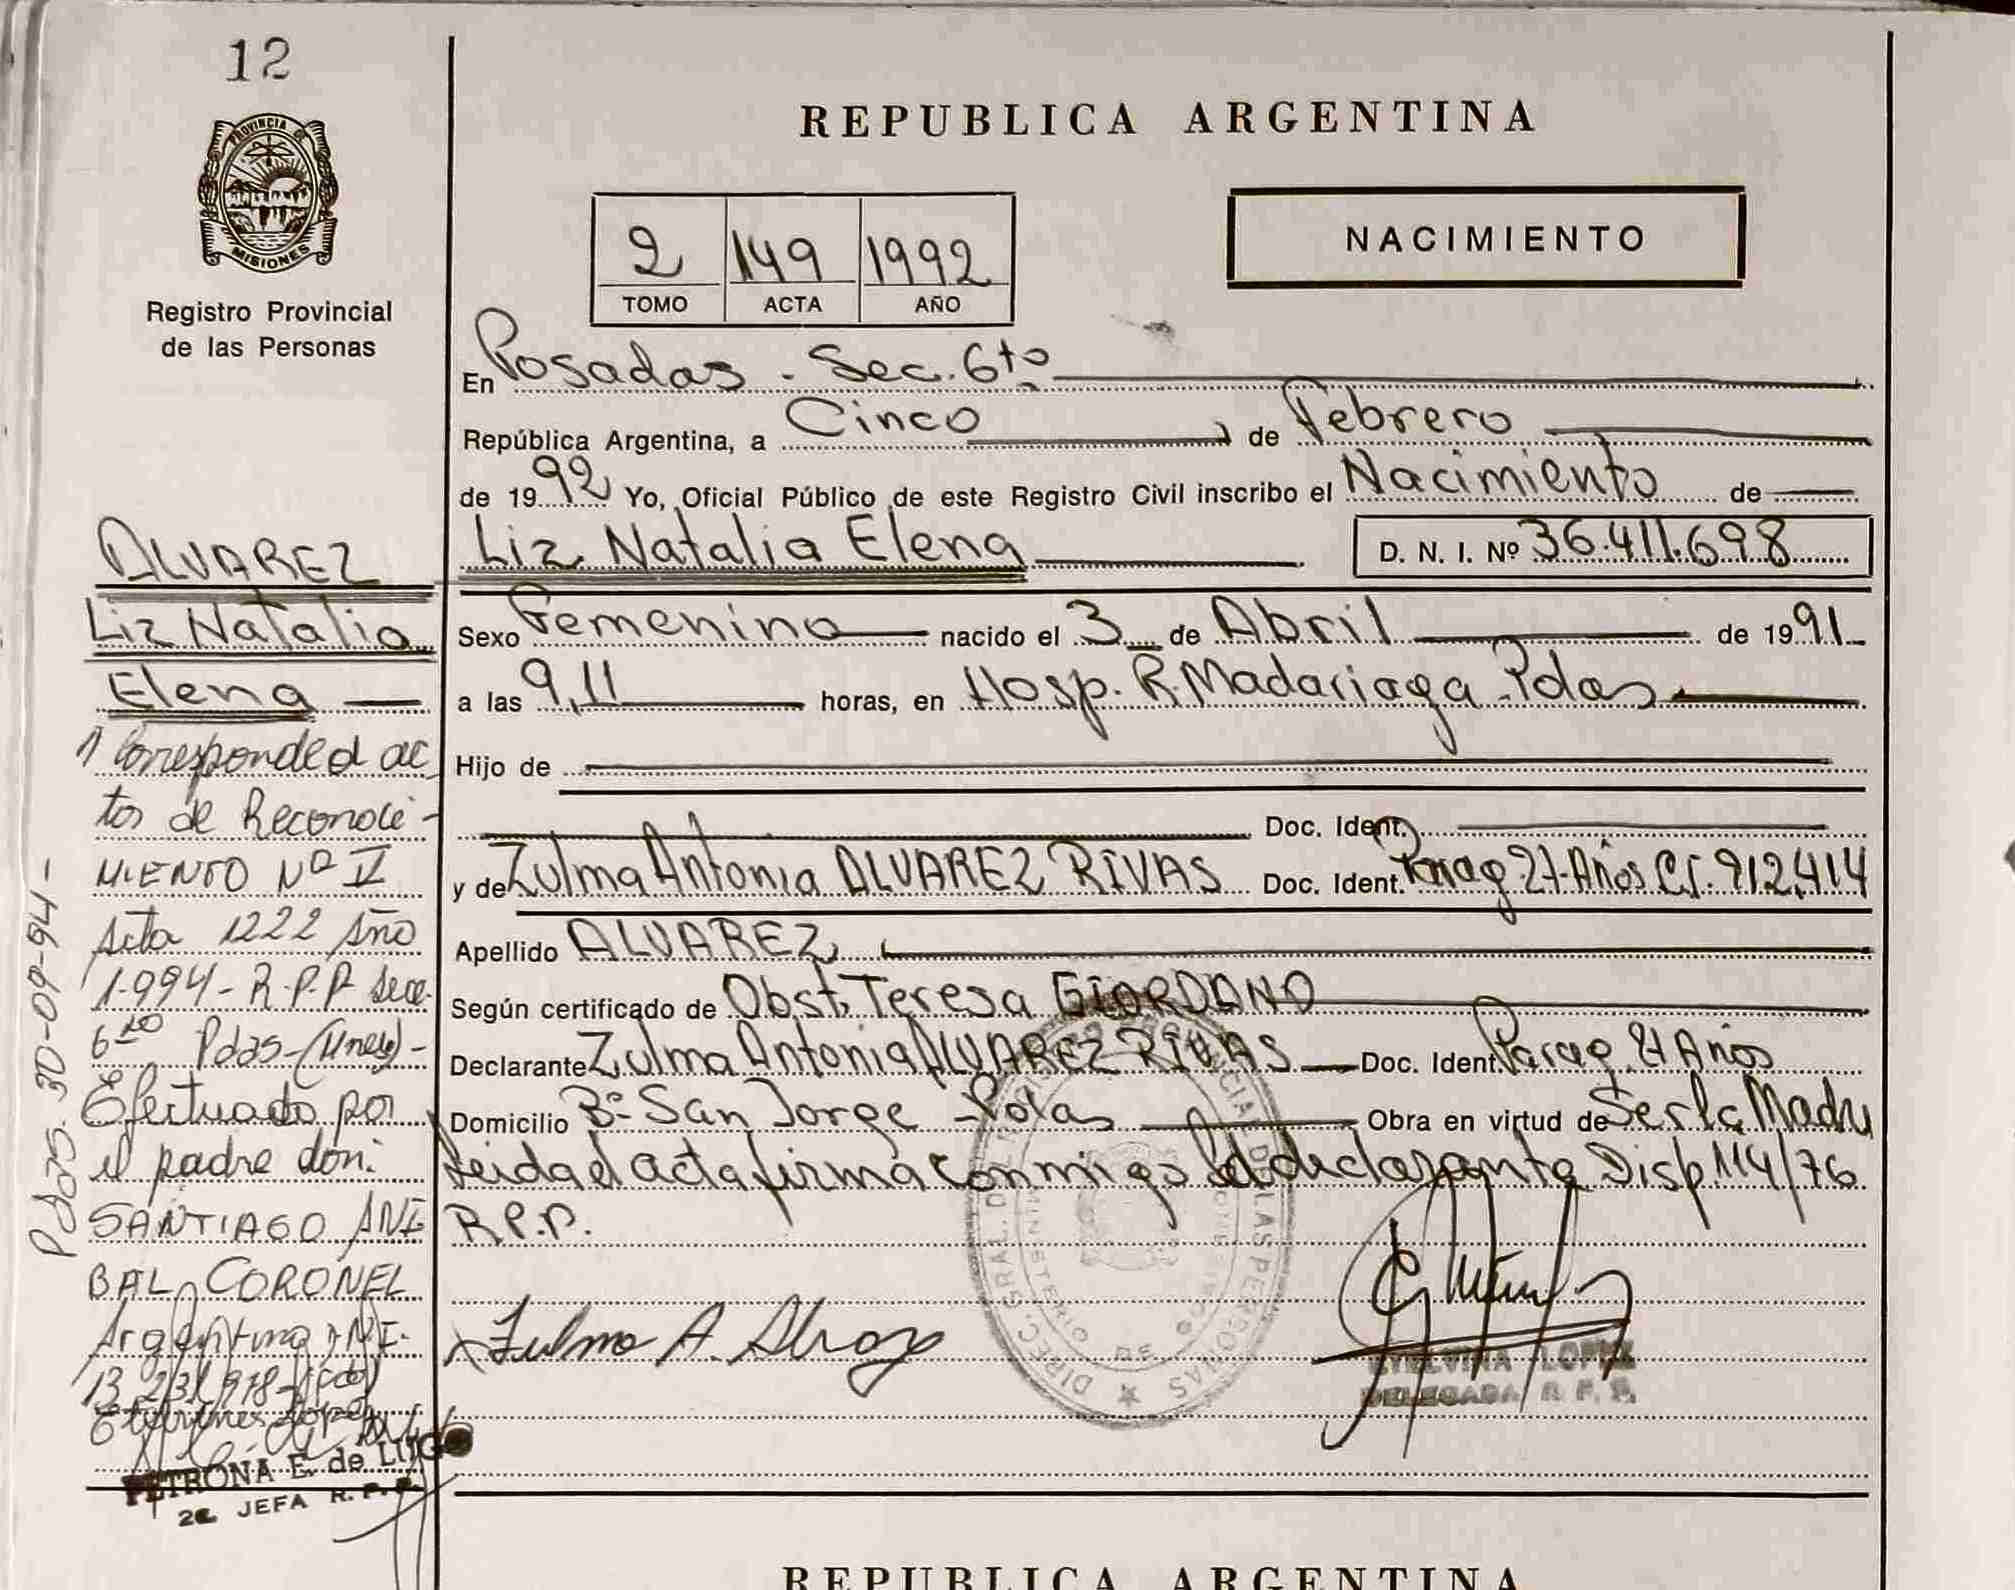 12
PROVINCIA DE
MISIONES
Registro Provincial
de las Personas
REPUBLICA ARGENTINA
2 149 1992
TOMO ACTA AÑO
NACIMIENTO
En Posadas - Sec. 6to
República Argentina, a Cinco de Febrero
de 1992 Yo, Oficial Público de este Registro Civil inscribo el Nacimiento de
Liz Natalia Elena D. N. I. Nº 36.411.698
Sexo Femenino nacido el 3 de Abril de 1991
a las 9,11 horas, en Hosp. R. Madariaga - Pdas
Hijo de
Doc. Ident.
y de Zulma Antonia ALVAREZ RIVAS Doc. Ident. Parag 27 Años C.I. 912.414
Apellido ALVAREZ
Según certificado de Obst. Teresa GIORDANO
Declarante Zulma Antonia ALVAREZ RIVAS Doc. Ident. Parag. 27 Años
Domicilio Bº San Jorge - Pdas Obra en virtud de Ser la Madre
leida el acta firma conmigo el declarante Disp. 114/76
R.P.P.
Zulma A. Alvarez
DIREC. GRAL. DEL REGISTRO PROVINCIAL DE LAS PERSONAS
MINISTERIO DE GOBIERNO
ETELVINA LOPEZ
DELEGADA R. P. P.
ALVAREZ
Liz Natalia
Elena
1 Corresponded ac
tos de Reconoci-
MIENTO Nº II
Acta 1222 Año
1.994 - R.P.P. Secc.
6ta Pdas -
Efectuado por
el padre don:
SANTIAGO ANI
BAL CORONEL
Argentino D.N.I.
PETRONA E. de LUGO
2a JEFA R. P. P.
Pdas. 30-09-94-
REPUBLICA ARGENTINA